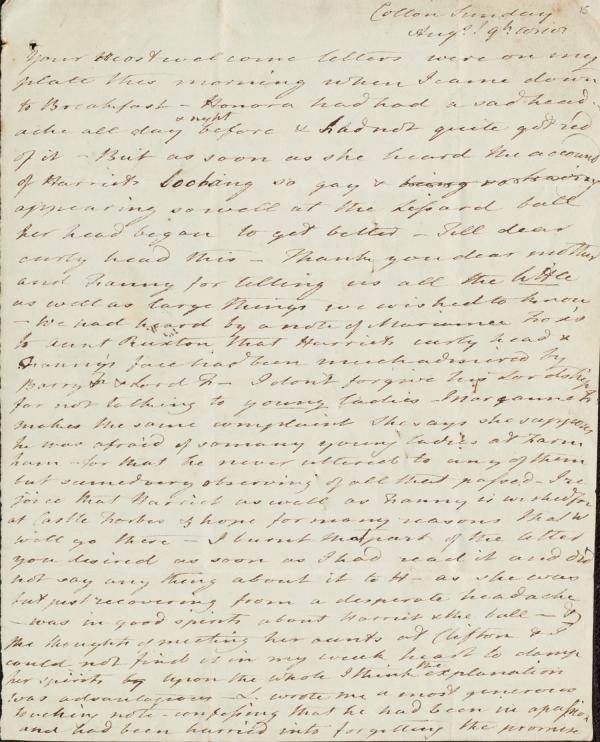 15
Collon Sunday
Augst 9th 1818
Your most welcome letters were on my
plate this morning when I came down
to Breakfast – Honora had had a sad head-
ache all day & night before & had not quite got rid
of it – But as soon as she heard the account
of Harriets looking so gay &
appearing so well at the Lifsard ball
her head began to get better – Tell dear
curly head this – Thank you dear mother
and Fanny for telling us all the little
as well as large things we wished to know
– We had heard by a note of Marianne Fox's
to aunt Ruxton that Harriets curly head &
Fanny's face had been much admired by
Barry F & Lord F – I don't forgive his Lordship
for not talking to young ladies – Marianne F
makes the same complaint She says she supposes
he was afraid of so many young ladies at Farn
ham – for that he never uttered to any of them
but seemed very observing of all that passed – I re
joice that Harriet as well as Fanny is wished for
at Castle Forbes & hope for many reasons that W
will go there – I burnt that part of the letter
you desired as soon as I had read it and did
not say any thing about it to H – as she was
but just recovering from a desperate headache
– was in good spirits about Harriet & the ball –
the thoughts of meeting her aunts at Clifton & I
could not find it in my weak heart to damp
her spirits upon the whole I think the explanation
was advantageous – L. wrote me a most generous
touching note – confessing that he had been in a passion
and had been hurried into forgetting the promise